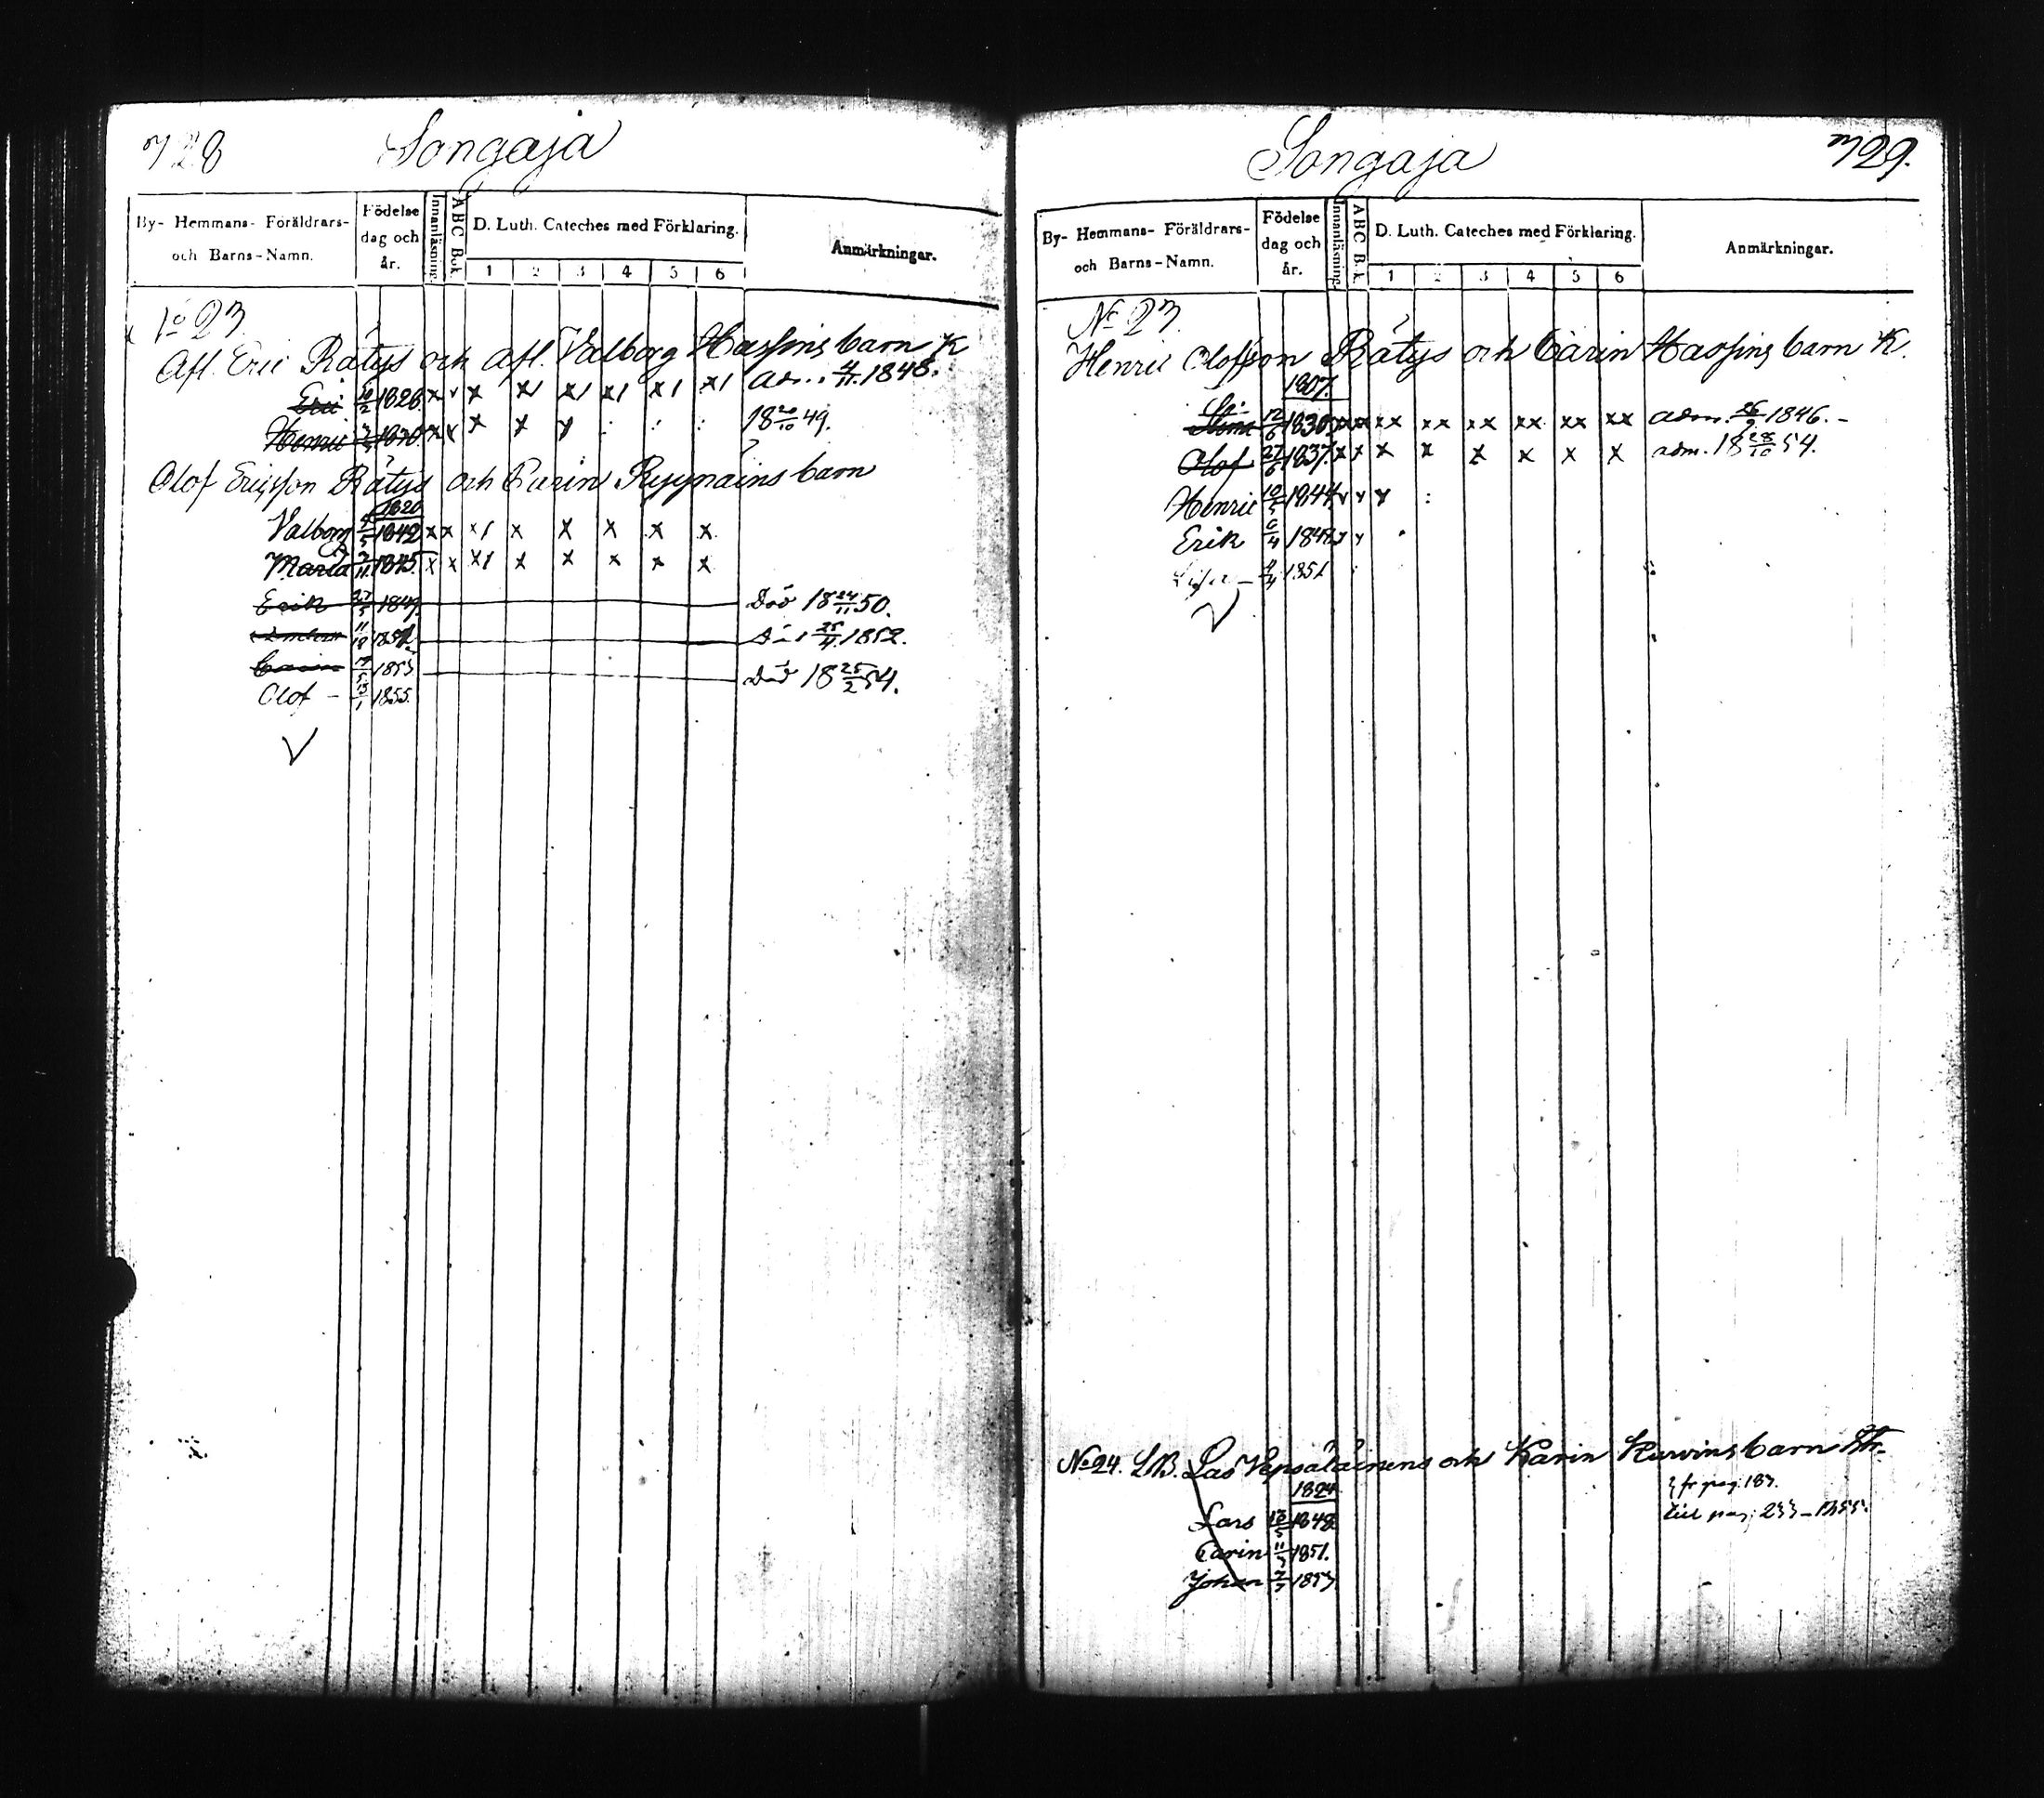 728 Songaja
By- Hemmans- Föräldrars- och Barns-Namn. Födelse dag och år. Innanläsning. ABC Bok D. Luth. Cateches med Förklaring. 1 2 3 4 5 6 Anmärkningar.
No 23
Afl. Eric Rätys och afl. Valborg Hassins barn K
Eric 10/2 1826. x v x x1 x1 x1 x1 x1 4/11 1845.
Henric x v x x v : : : 18 20/10 49.
Olof Ericsson Rätys och Carin Ryynäins barn
1820
Valborg 1842 x x x1 x x x x x
Maria 1845 x x x1 x x x x x
Erik 27/5 1849. Död 18 24/11 50.
11/10 1852. 25/11 1852.
Carin 1853 Död 18 25/2 54.
Olof - 1855.
729.
Songaja
By- Hemmans- Föräldrars- och Barns-Namn. Födelse dag och år. Innanläsning. ABC Bok D. Luth. Cateches med Förklaring. 1 2 3 4 5 6 Anmärkningar.
No 23.
Henric Olofsson Rätys och Carin Hassins barn K.
1807.
12/6 1830. xx xx xx xx xx xx xx xx adm. 26/9 1846. -
Olof 27/6 1837. x x x x x x x x adm. 18 28/10 54.
Henric 10/5 1844. v v v :
Erik 6/4 184 v v
4/4 1851
No 24. LB. Las Vepsäläinens och Karin Kurvins barn
1824
fr pag. 183.
Lars 1848.
till pag. 233 - 1855.
Carin 1851.
Johan 1853